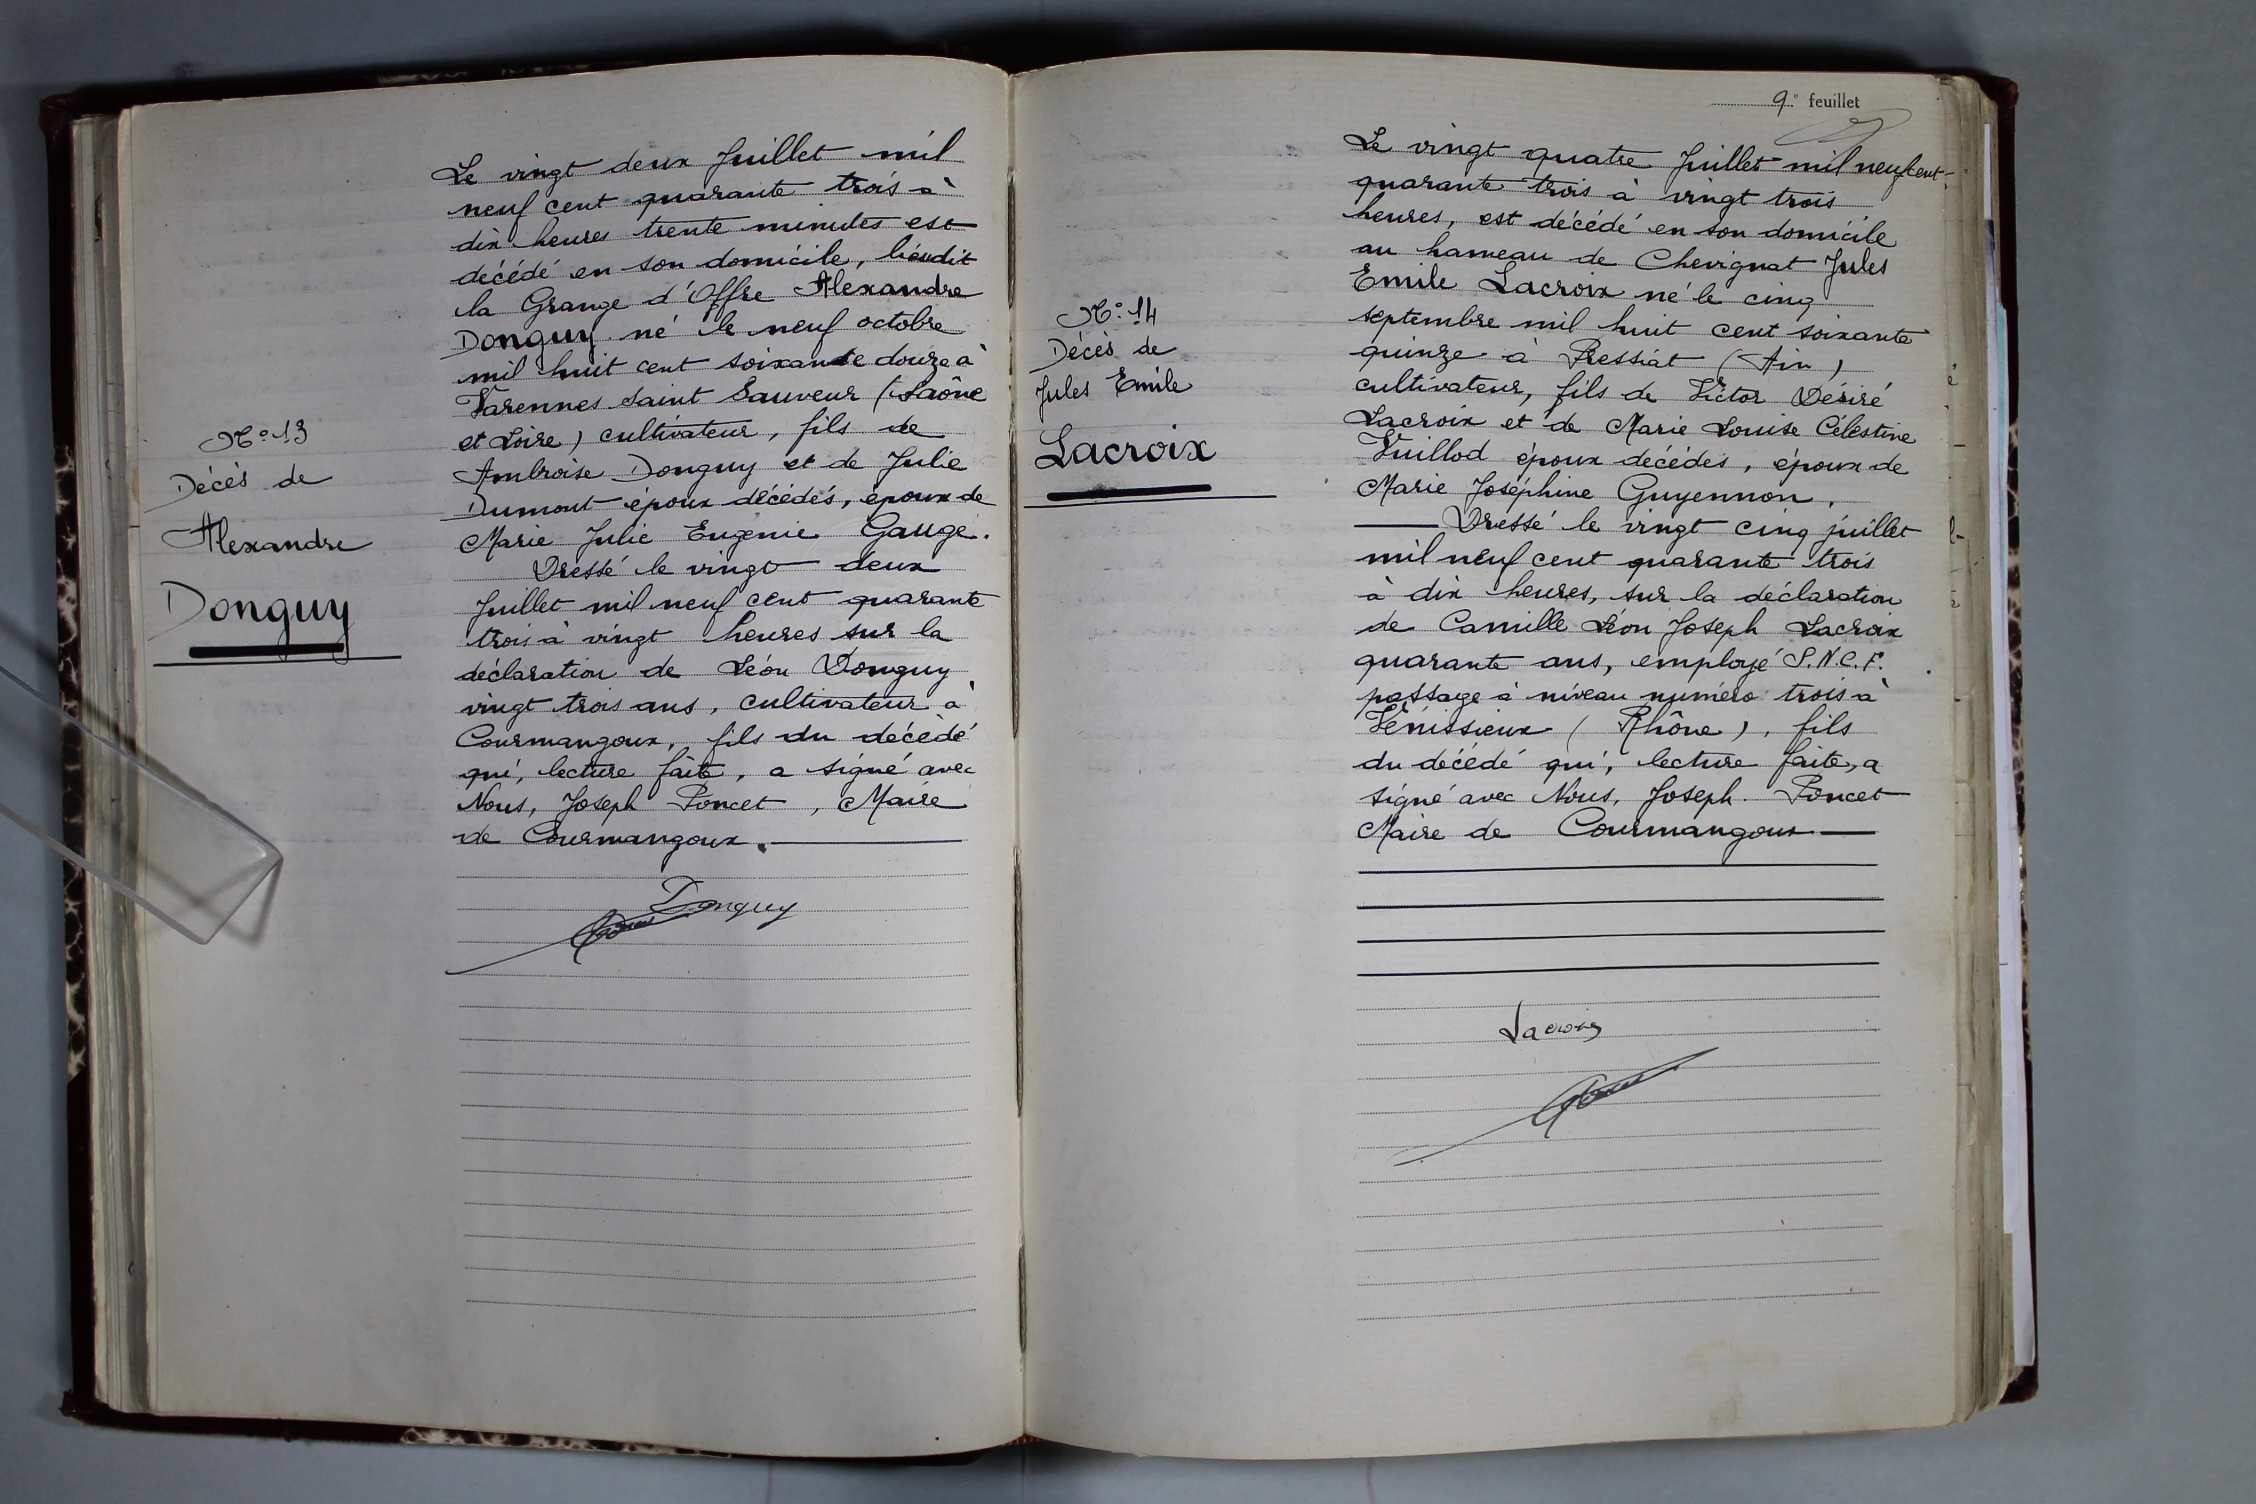 N° 13
Décès de
Alexandre
Donguy
Le vingt deux Juillet mil
neuf cent quarante trois à
dix heures trente minutes est
décédé en son domicile, lieudit
la Grange d'Offre Alexandre
Donguy né le neuf octobre
mil huit cent soixante douze à
Varennes Saint Sauveur (Saône
et Loire) cultivateur, fils de
Ambroise Donguy et de Julie
Dumont époux décédés, époux de
Marie Julie Eugénie Gauge.
Dressé le vingt deux
Juillet mil neuf cent quarante
trois à vingt heures sur la
déclaration de Léon Donguy
vingt trois ans, cultivateur à
Courmangoux, fils du décédé
qui, lecture faite, a signé avec
Nous, Joseph Poncet, Maire
de Courmangoux.
Donguy
Poncet
9e feuillet
N° 14
Décès de
Jules Emile
Lacroix
Le vingt quatre Juillet mil neuf cent-
quarante trois à vingt trois
heures, est décédé en son domicile
au hameau de Chevignat Jules
Emile Lacroix né le cinq
septembre mil huit cent soixante
quinze à Pressiat (Ain)
cultivateur, fils de Victor Désiré
Lacroix et de Marie Louise Célestine
Vuillod époux décédés, époux de
Marie Joséphine Guyennon.
Dressé le vingt cinq juillet
mil neuf cent quarante trois
à dix heures, sur la déclaration
de Camille Léon Joseph Lacroix
quarante ans, employé S.N.C.F.
passage à niveau numéro trois à
Vénissieux (Rhône), fils
du décédé qui, lecture faite, a
signé avec Nous, Joseph Poncet
Maire de Courmangoux
Lacroix
Poncet